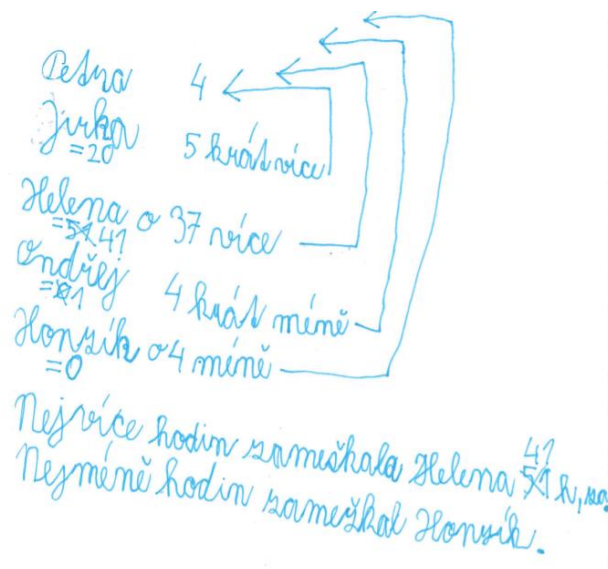 Petra 4
Jirka 5 krát více
=20
Helena o 37 více
=51 41
Ondřej 4 krát méně
=01
Honzík o 4 méně
=0
Nejvíce hodin zameškala Helena 51 41 h, za
Nejméně hodin zameškal Honzík.